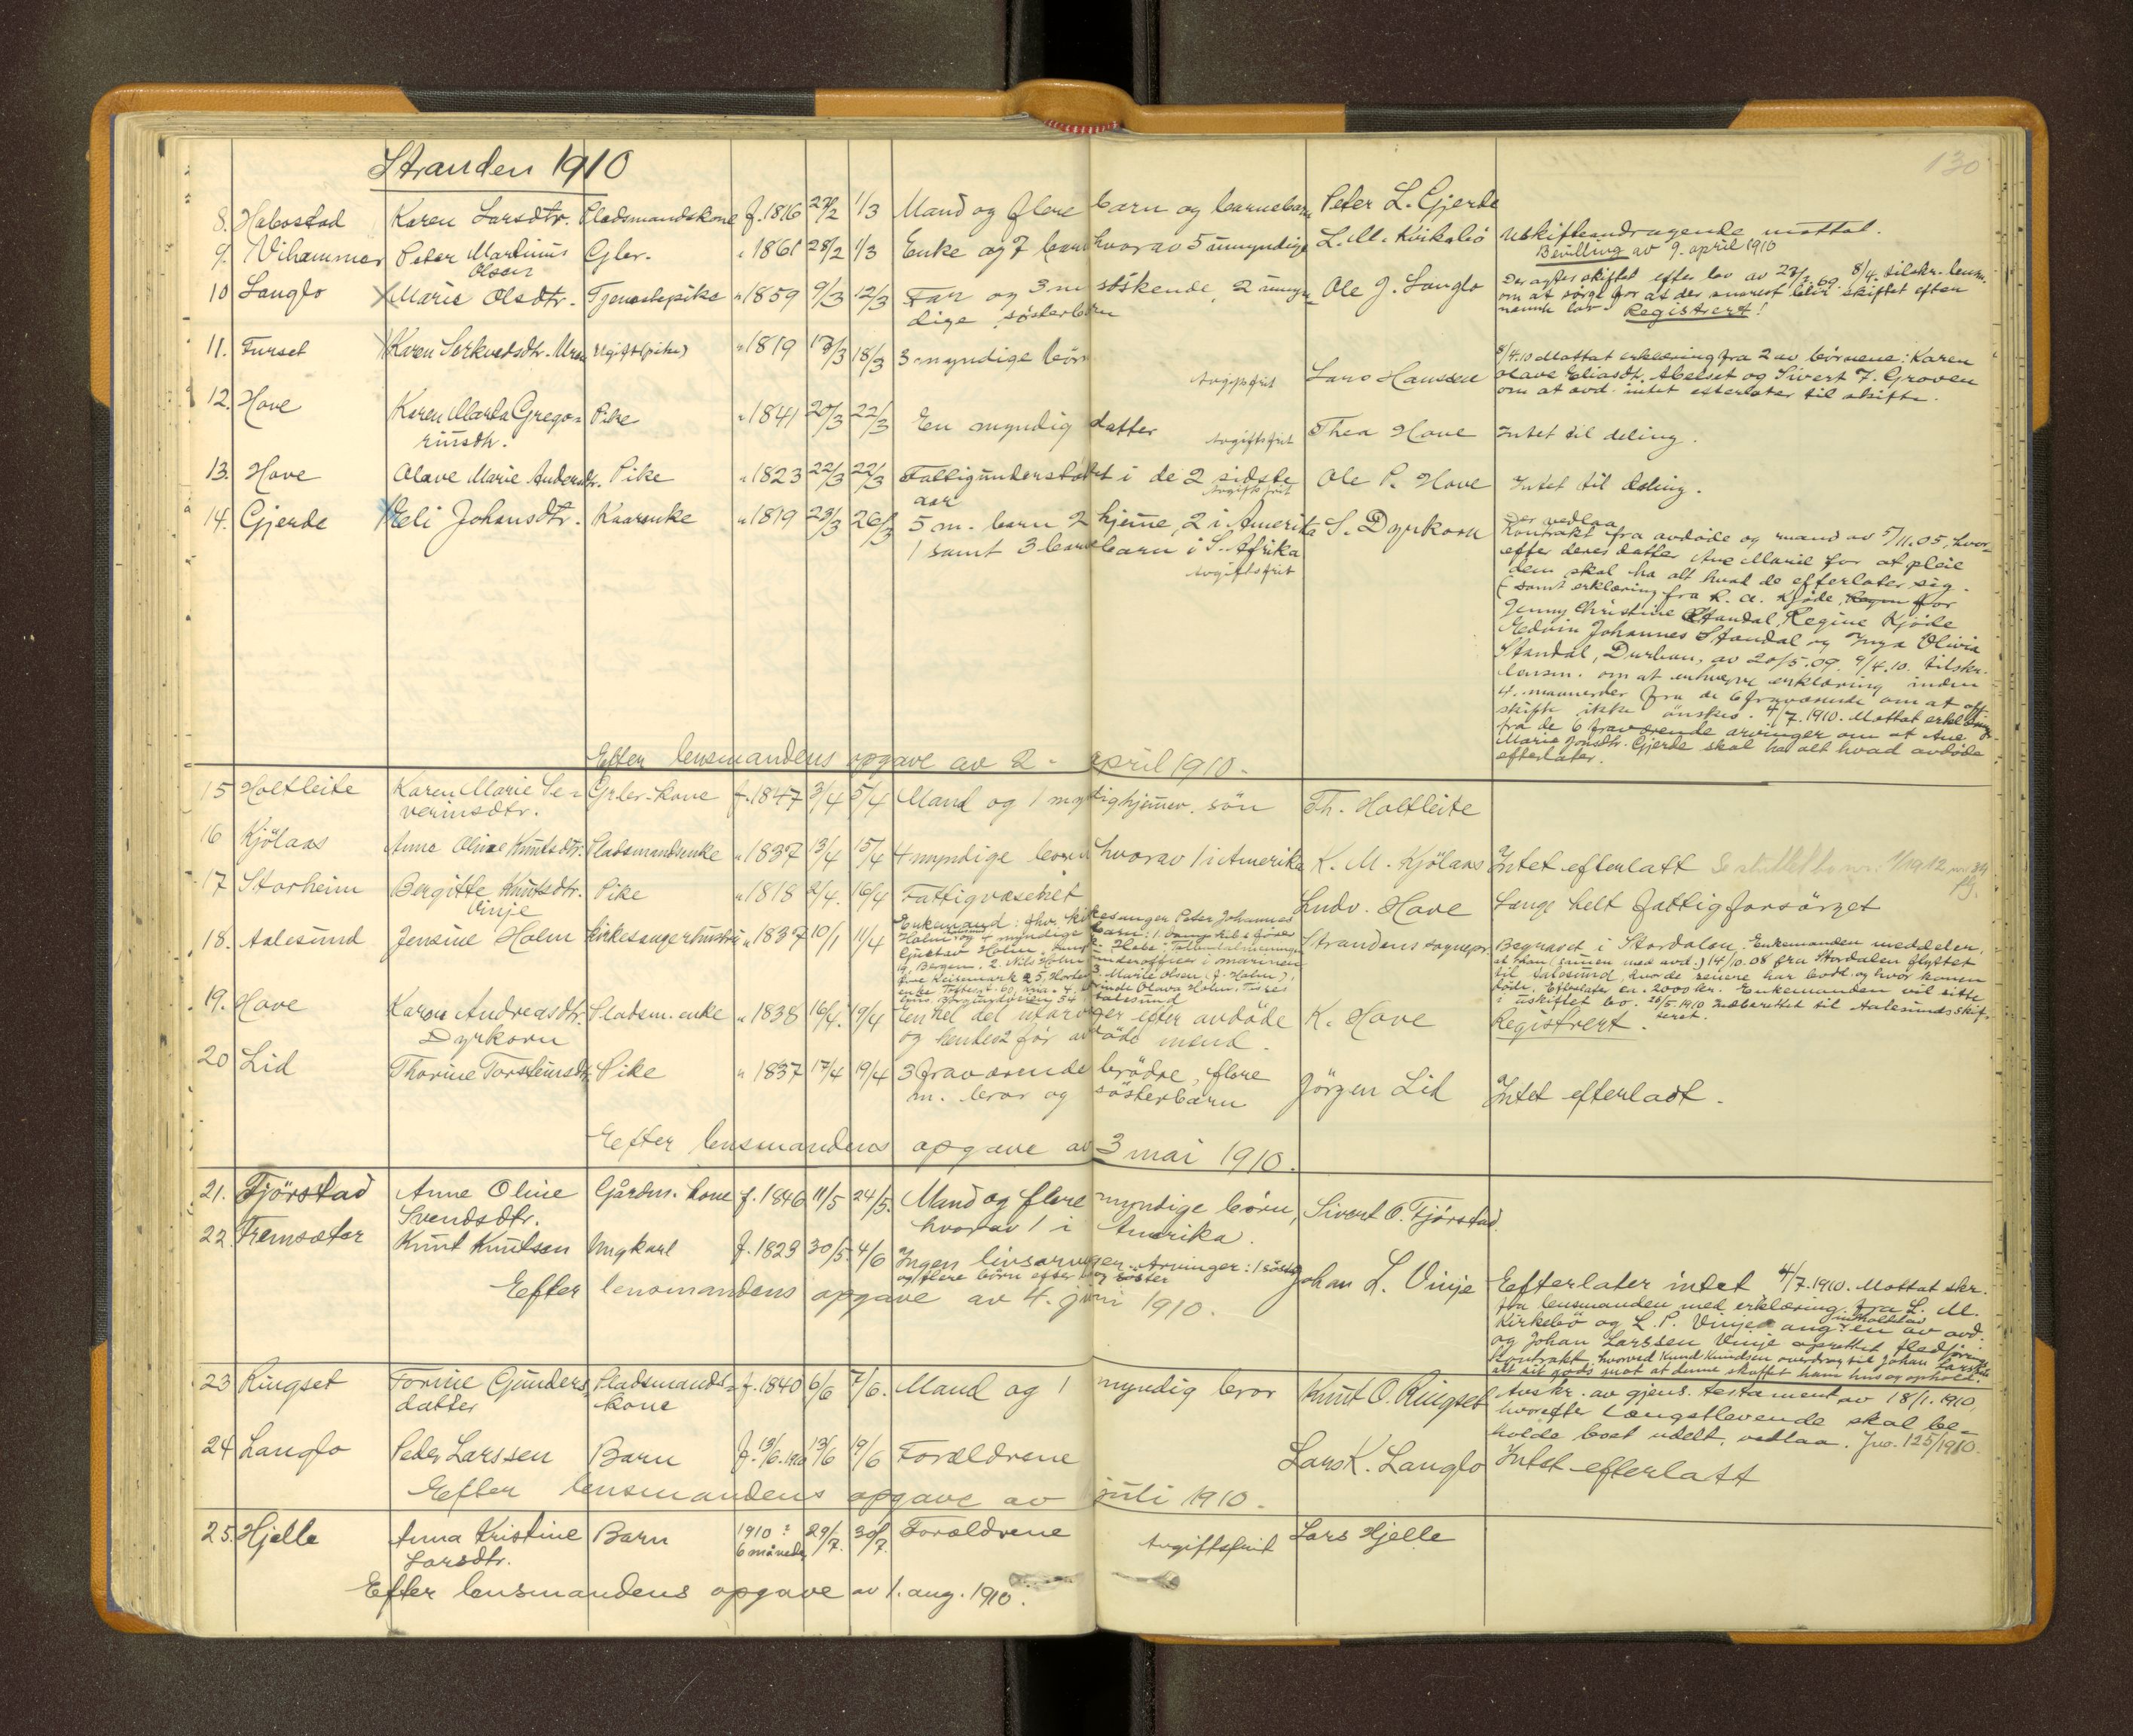 130
Stranden 1910
8. Habostad Karen Larsdtr. Pladsmandskone f. 1816 27/2 1/3 Mand og flere barn og barnebarn Peter L. Gjerde
9. Vihammer Peter Martinus Gbr. " 1861 28/2 1/3 Enke og 7 barn hvorav 5 umyndige L. M. Kirkebö Uskifteandragende mottat.
Olsen Bevilling av 9. april 1910
10 Langlo Marie Olsdtr. Tjenestepike " 1859 9/3 12/3 Far og 3 m söskende, 2 umyn= Ole J. Langlo Der agtes skiftet efter lov av 27/2 69. 8/4. tilskr. lensm.
dige sösterbarn om at sörge for at der snarest blir skiftet efter
nævnte lov Registrert!
11. Furset Karen Serkvedsdtr. Ugift (pike) " 1819 17/3 18/3 3 myndige börn Avgiftsfrit Lars Hanssen 8/4.10 Mottat erklæring fra 2 av börnene: Karen
Olave Eliasdtr. Abelset og Sivert 7. Groven
om at avd. intet efterlater til skifte.
12. Hove Karen Marta Grego= Pike " 1841 20/3 22/3 En myndig datter Avgiftsfrit Thea Hove Intet til deling.
riusdtr.
13. Hove Olave Marie Andersdtr. Pike " 1823 22/3 22/3 Fattigunderstöttet i de 2 sidste Ole P. Hove Intet til deling.
aar Avgiftsfrit
14. Gjerde Eli Johansdtr. Kaarenke " 1819 23/3 26/3 5 m. barn 2 hjeme, 2 i Amerika S. Dyrkorn Der vedlaa
1 samt 3 barnebarn i S. Afrika Kontrakt fra avdöde og mand av 5/11.05, hvor=
Avgiftsfrit efter deres datter Ane Marie for at pleie
dem skal ha alt hvad de efterlater sig.
(samt erklæring fra R. A. Kjöde, for
Jenny Christine Standal, Regine Kjöde
Edvin Johannes Standal og Inga Olivia
Standal, Durban, av 20/5.09. 9/4.10. tilskr.
lensm. om at erklæring inden
4. maaneder fra de 6 fraværende om at off.
skifte ikke önskes. 4/7.1910. Mottat erklæring
fra de 6 fraværende arvinger om at Ane
Marie Jonsdtr. Gjerde skal ha alt hvad avdöde
efterlater.
Efter lensmandens opgave av 2. april 1910.
15 Holtleite Karen Marie Se= Grbr. kone f. 1847 3/4 5/4 Mand og 1 myndig hjemev. sön Th. Holtleite
verinsdtr.
16 Kjölaas Anne Oline Knutsdtr. Pladsmandsenke " 1837 13/4 15/4 4 myndige börn hvorav 1 i Amerika K. M. Kjölaas Intet efterlatt
17 Storheim Bergitte Knutsdtr. Pike " 1818 2/4. 16/4 Fattigvæsenet Ludv. Hove Længe helt fattigforsörget
Vinje
18. Aalesund Jensine Holm Kirkesangerhustru " 1837 10/1 11/4 Enkemand: fhv. kirkesanger Peter Johannes Strandens sognepr. Begravet i Stordalen. Enkemanden meddeler,
Holm og 4 myndige barn: 1. at han (sammen med avd.) 14/10.08 fra Stordalen flyttet
Gustav Holm, til Aalesund, hvor de senere har bodt og hvor konen
14, Bergen, 2. Nils Holm underofficer i marinen döde. Efterlater ca. 2000 kr. Enkemanden vil sitte
3. Marie Olsen (f. Holm), i uskiftet bo. 26/5.1910 Indberettet til Aalesunds skif=
54 Aalesund teret.
19. Hove Karen Andreasdtr. Pladsm. enke " 1838 16/4. 19/4 En hel del utarvinger efter avdöde K. Hove Registrert.
Dyrkorn og hendes 2 før avdöde mænd.
20 Lid Thorine Torsteinsdtr. Pike " 1837 17/4 19/4 3 fraværende brödre, flere Jörgen Lid Intet efterladt.
m. bror og sösterbarn
Efter lensmandens opgave av 3 mai 1910.
21. Fjörstad Anne Oline Gårdm. kone f. 1846 11/5 24/5. Mand og flere myndige börn, Sivert O. Fjörstad.
Svendsdtr. hvorav 1 i Amerika.
22. Fremsæter Knut Knutsen Ungkarl f. 1823 30/5. 4/6 Ingen livsarvinger. Arvinger: 1 söster Johan L. Vinje Efterlater intet 4/7.1910. Mottat skr.
og flere börn efter og söster fra lensmanden med erklæring fra L. M.
Efter lensmandens opgave av 4. juni 1910. Kirkebö og L. P. Vinje ang. indholdet av en av avd.
og Johan Larssen Vinje oprettet flædförings
kontrakt, hvorved Knud Knudsen overdrog til Johan Larssen
alt sit gods mot at denne skaffet ham hus og ophold.
23 Ringset Torine Gunders= Pladsmands= f. 1840 6/6 7/6. Mand og 1 myndig bror Knut O. Ringset Avskr. av gjens. testament av 18/1. 1910,
datter kone hvorefter længstlevende skal be=
holde boet udelt, vedlaa. Jno. 125/1910.
24 Langlo Peder Larssen Barn f. 13/6.1910 13/6 19/6 Forældrene Lars K. Langlo Intet efterlatt
Efter lensmandens opgave av juli 1910.
25. Hjelle Anna Kristine Barn 1910: 29/7. 30/7. Forældrene Avgiftsfrit Lars Hjelle
Larsdtr. 6 måneder
Efter lensmandens opgave av 1. aug. 1910.